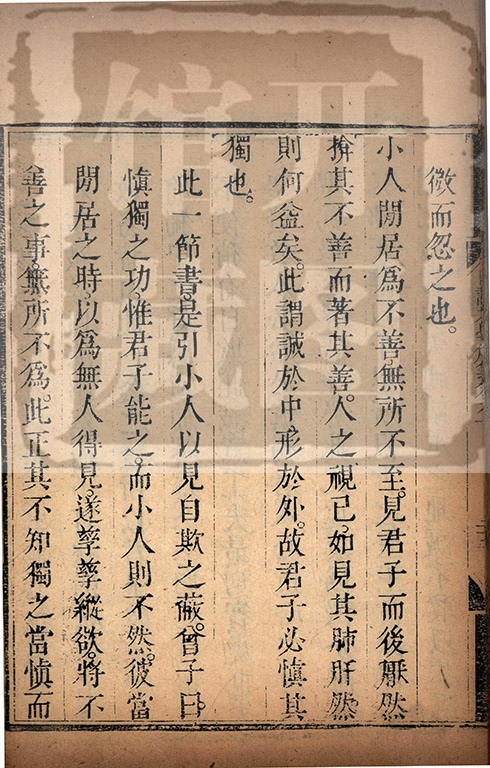 微而忽之也。
小人閒居爲不善無所不至。見君子而後厭然
揜其不善而著其善。人之視己。如見其肺肝然
則何益矣。此謂誠於中形於外。故君子必慎其
獨也。
此一節書。是引小人以見自欺之蔽。曾子曰。
慎獨之功。惟君子能之。而小人則不然。彼當
閒居之時。以爲無人得見。遂孳孳縱欲。將不
善之事。無所不爲。此正其不知獨之當慎而